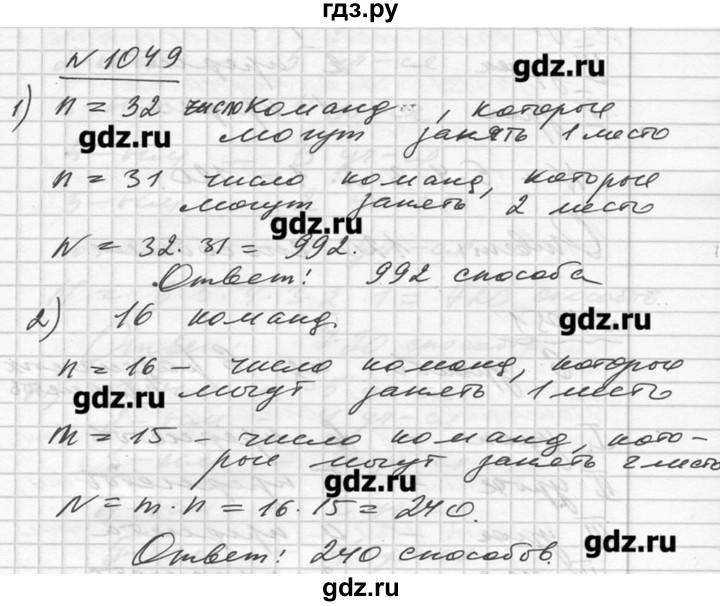 гдз.ру
N 1049
gdz.ru
1) n = 32 число команд, которые
gdz.ru
могут занять 1 место
n = 31 число команд, которые
могут занять 2 место
gdz.ru
N = 32 · 31 = 992.
Ответ: 992 способа
2) 16 команд.
gdz.ru
n = 16 – число команд, которые
gdz.ru
могут занять 1 место
m = 15 – число команд, кото-
рые могут занять 2 место
gdz.ru
N = m · n = 16 · 15 = 240.
Ответ: 240 способов.
gdz.ru
gdz.ru